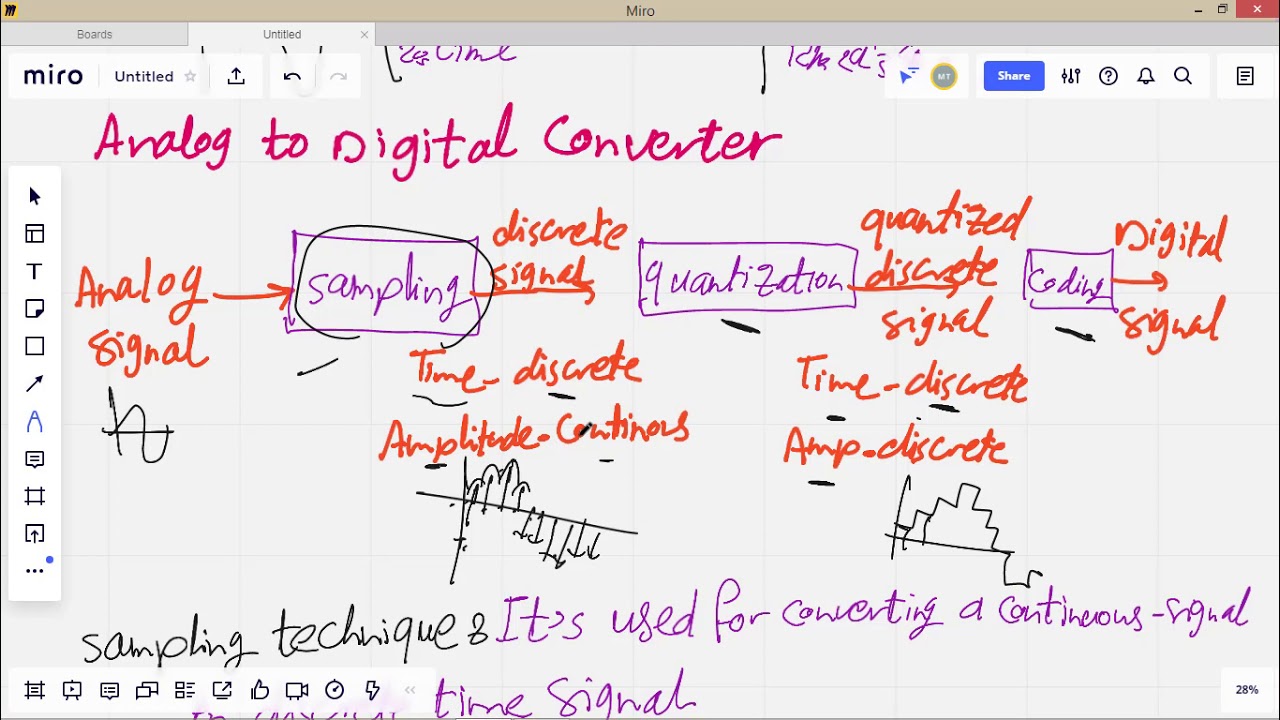 Miro
Boards
Untitled
miro
Untitled
Share
MT
Analog to Digital Converter
Analog
signal
sampling
discrete
signal
quantization
quantized
discrete
signal
Coding
Digital
signal
Time-discrete
Amplitude-Continous
Time-discrete
Amp-discrete
sampling technique: It's used for converting a continuous-signal
time signal
T
28%